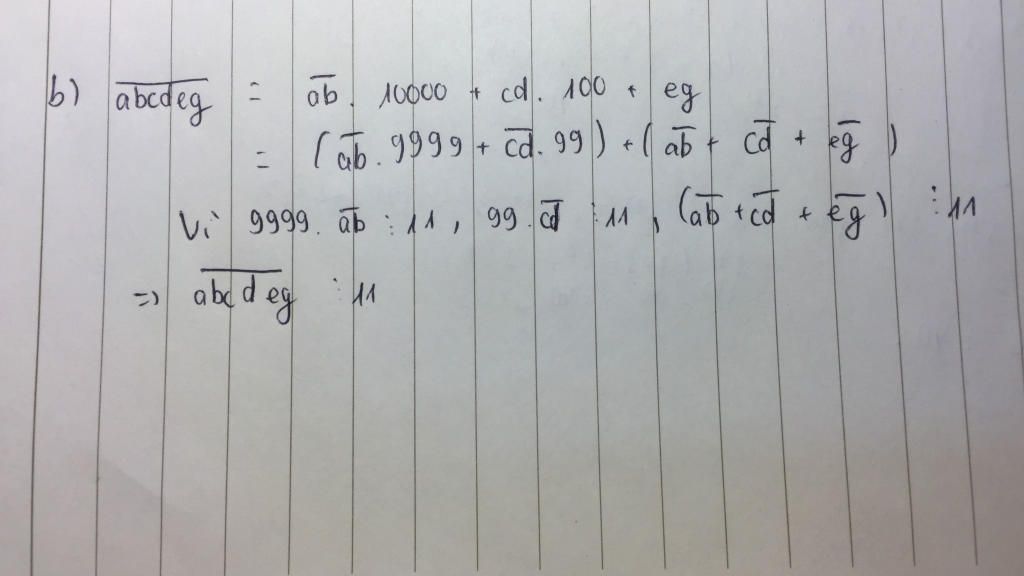 b) \overline{abcdeg} = \overline{ab}. 10000 + cd. 100 + eg
= (\overline{ab}. 9999 + \overline{cd}. 99) + (\overline{ab} + \overline{cd} + \overline{eg})
Vì 9999. \overline{ab} ⋮ 11, 99. \overline{cd} ⋮ 11, (\overline{ab} + \overline{cd} + \overline{eg}) ⋮ 11
=> \overline{abcdeg} ⋮ 11